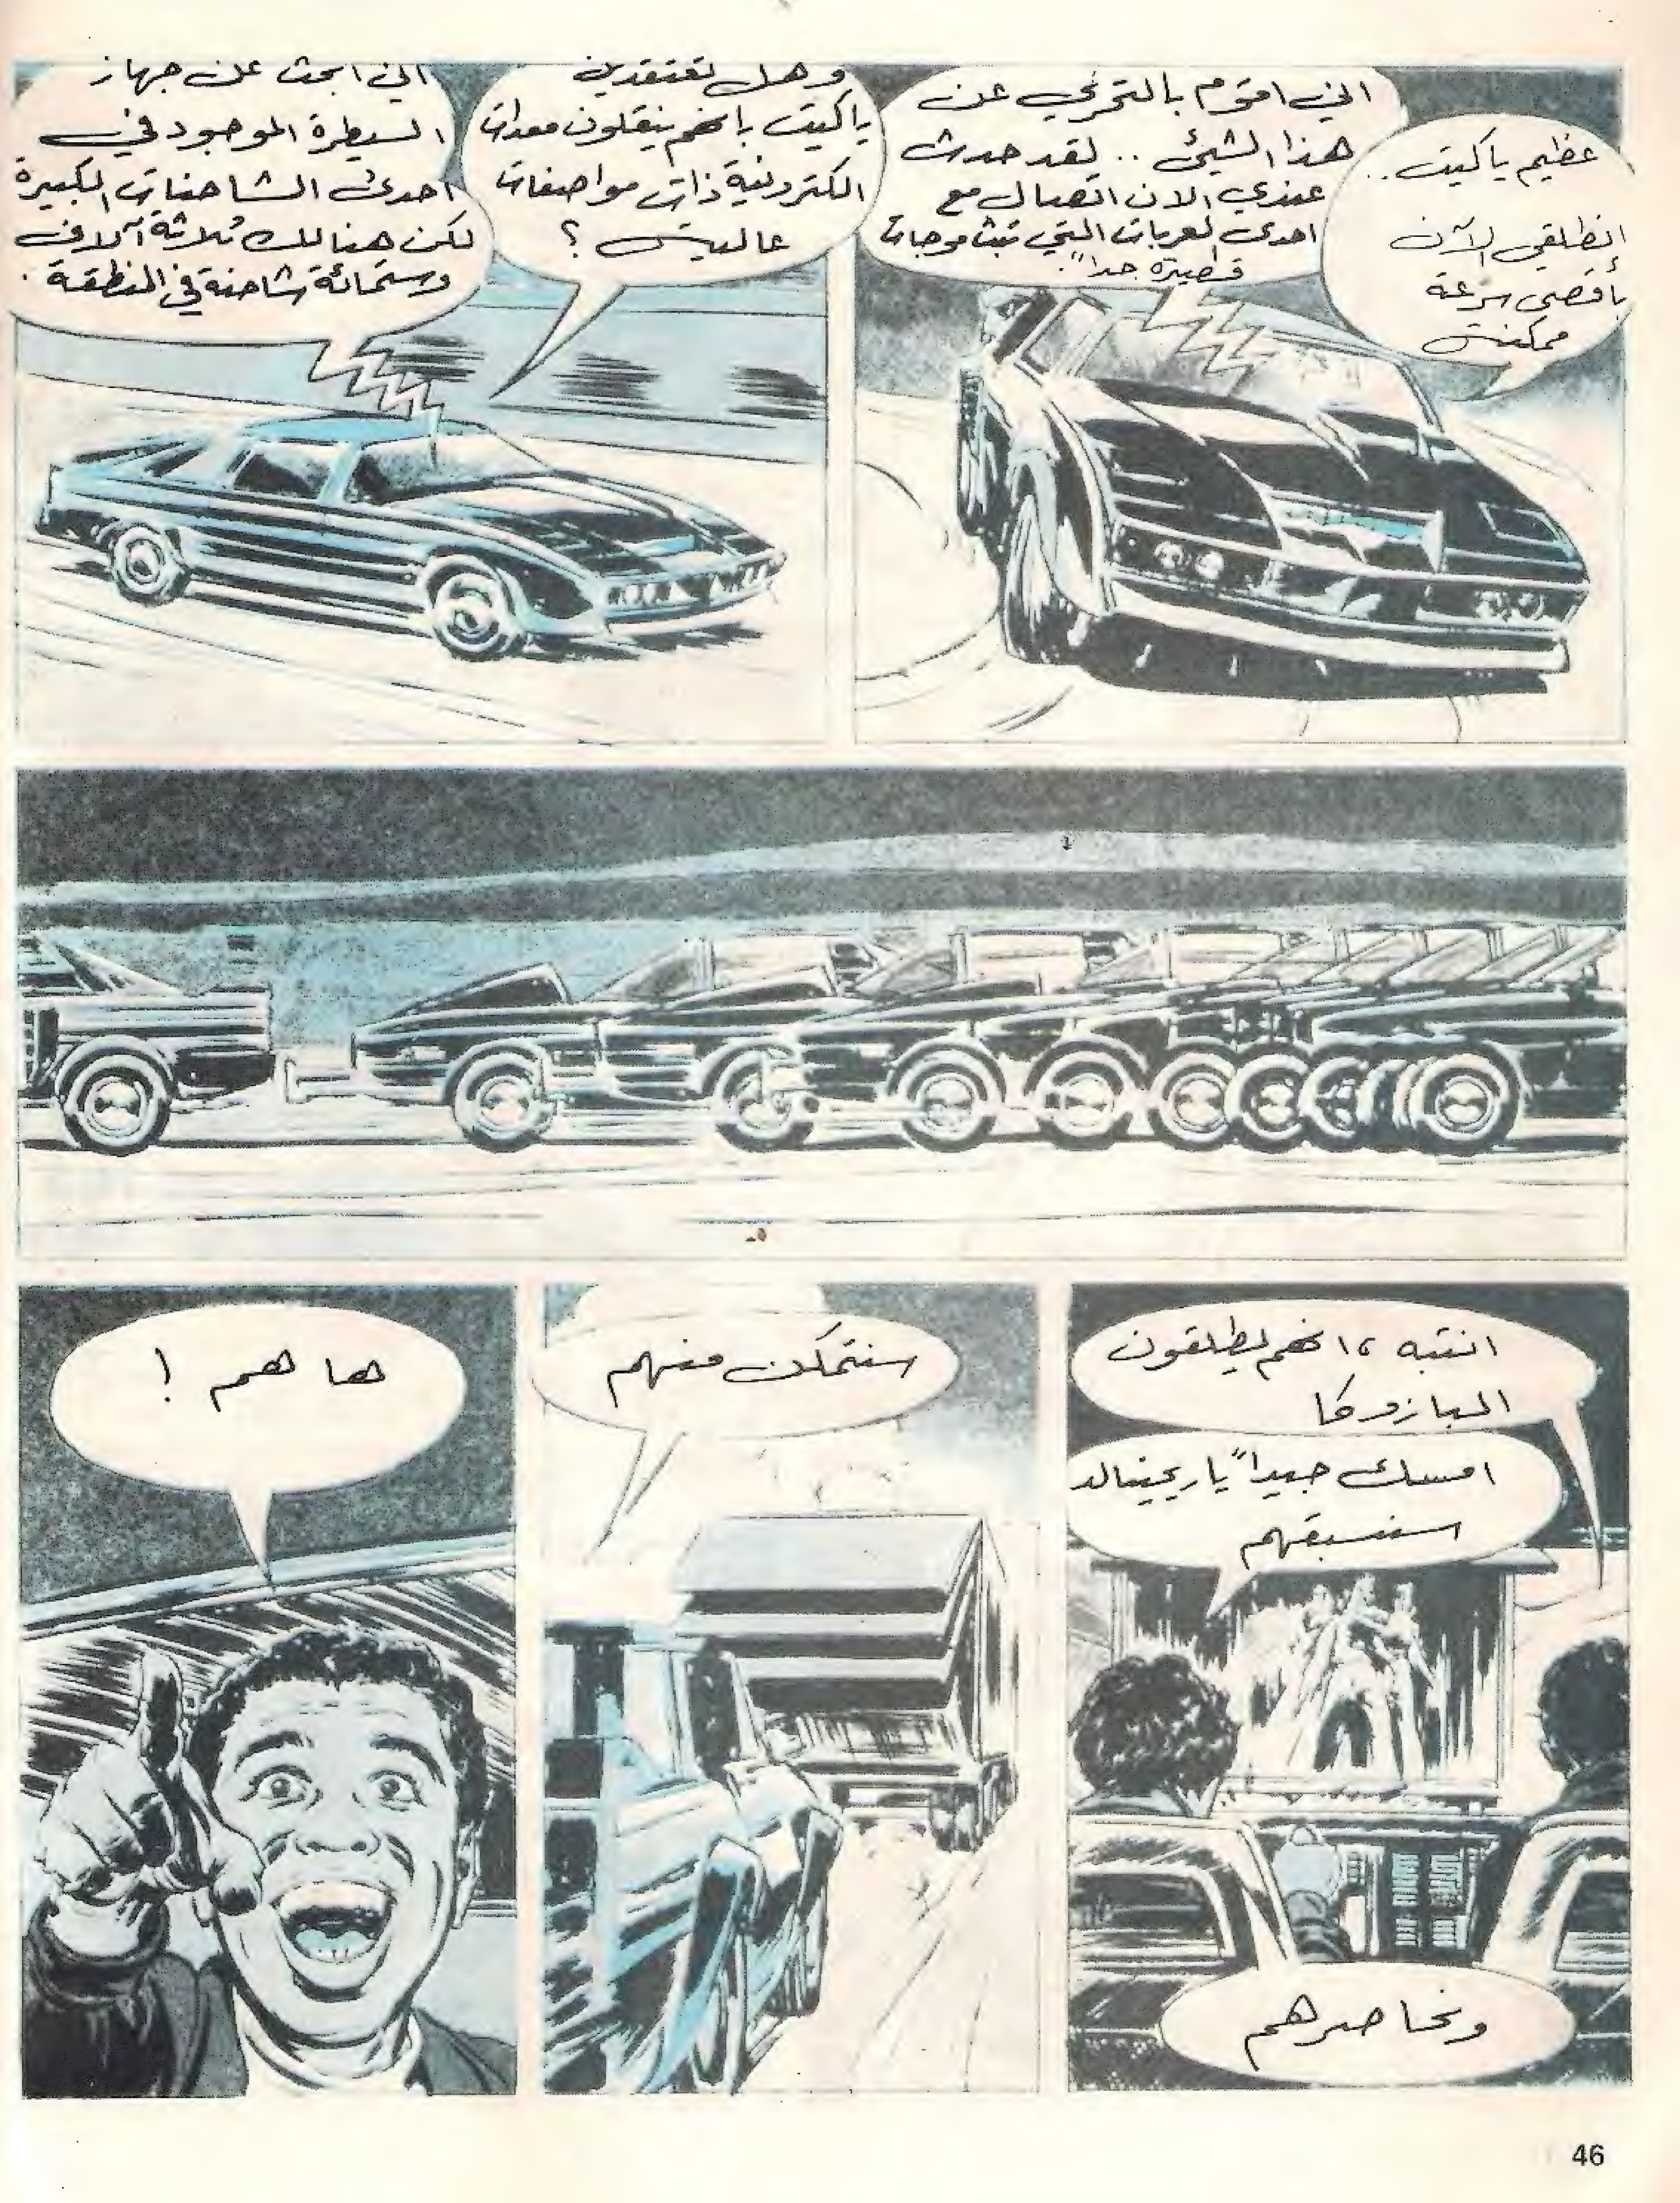 عظيم يا كيت ..
انطلقي الآن
بأقصى سرعة
ممكنة
اني اقوم بالتحري عن
هذا الشيئ .. لقد حدث
عندي الان اتصال مع
احدى العربات التي تبث موجات
قصيرة جداً.
وهل تعتقدين
يا كيت بانهم ينقلون معدات
الكترونية ذات مواصفات
عالية ؟
اني ابحث عن جهاز
السيطرة الموجود في
احدى الشاحنات الكبيرة
لكن هنالك ثلاثة آلاف
وستمائة شاحنة في المنطقة .
انتبه ، انهم يطلقون
البازوكا
امسك جيداً يا ريجينالد
سنسبقهم
ونحاصرهم
سنتمكن منهم
ها هم !
46